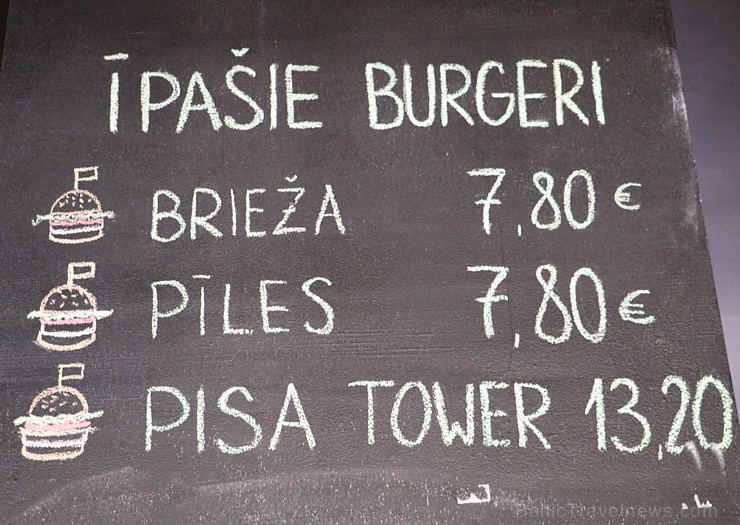 ĪPAŠIE BURGERI
BRIEŽA 7,80 €
PĪLES 7,80 €
PISA TOWER 13,20
BalticTravelnews.com